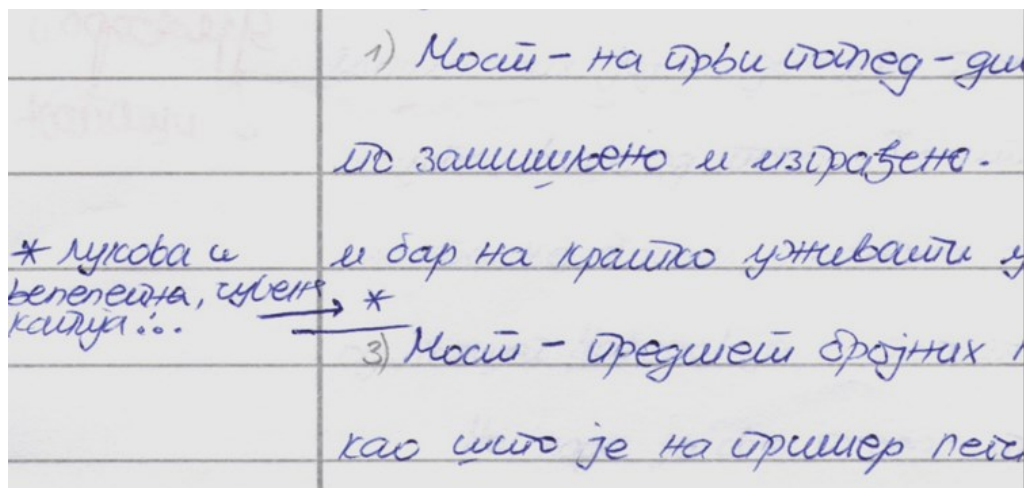 1) Мост – на први поглед –
то замишљено и изграђено.
* лукова и
чувена
капија...
и бар на кратко уживати у
→ *
3) Мост – предмет бројних
као што је на пример